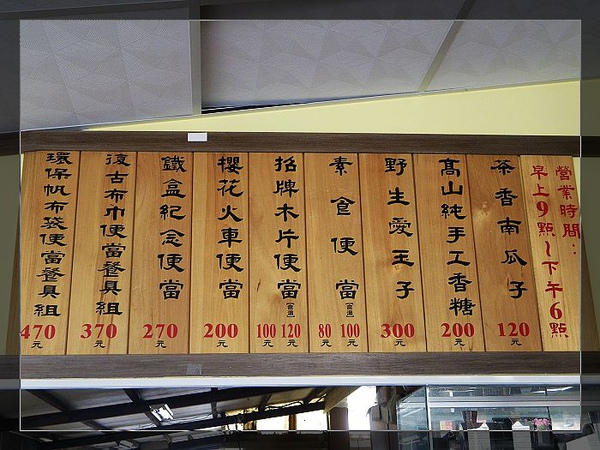 營業時間:
早上9點~下午6點
茶香南瓜子
120元
高山純手工香糖
200元
野生愛玉子
300元
素食便當
80 100元
招牌木片便當
100 120元
櫻花火車便當
200元
鐵盒紀念便當
270元
復古布巾便當餐具組
370元
環保帆布袋便當餐具組
470元